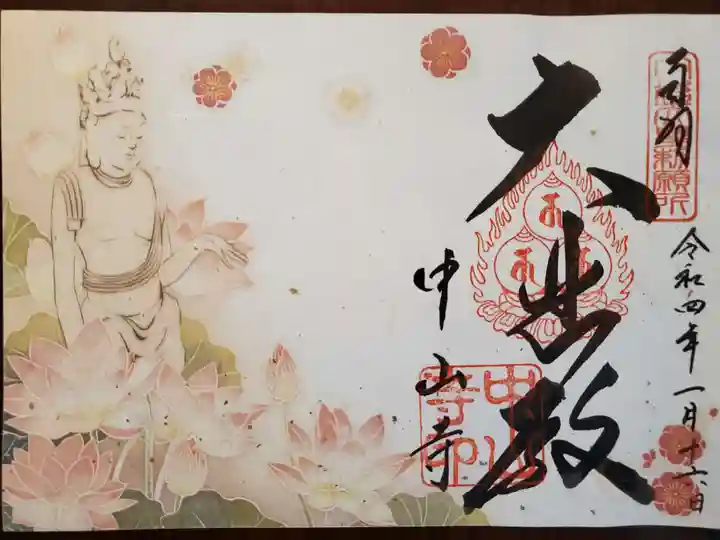 奉拝
令和四年一月十六日
大悲殿
中山寺
中山寺印